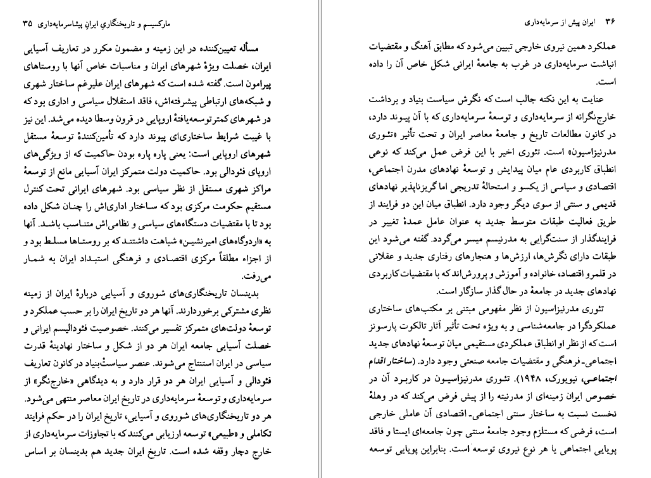 مارکسیسم و تاریخنگاری ایران پیشاسرمایه‌داری ۳۵
مسأله تعیین‌کننده در این زمینه و مضمون مکرر در تعاریف آسیایی
ایران، خصلت ویژهٔ شهرهای ایران و مناسبات خاص آنها با روستاهای
پیرامون است. گفته شده است که شهرهای ایران علیرغم ساختار شهری
و شبکه‌های ارتباطی پیشرفته‌اش، فاقد استقلال سیاسی و اداری بود که
در شهرهای کمتر توسعه‌یافتهٔ اروپایی در قرون وسطا دیده می‌شد. این نیز
با غیبت شرایط ساختاری‌ای پیوند دارد که تأمین‌کنندهٔ توسعهٔ مستقل
شهرهای اروپایی است: یعنی پاره پاره بودن حاکمیت که از ویژگی‌های
اروپای فئودالی بود. حاکمیت دولت متمرکز ایران آسیایی مانع از توسعهٔ
مراکز شهری مستقل از نظر سیاسی بود. شهرهای ایرانی تحت کنترل
مستقیم حکومت مرکزی بود که ساختار اداری‌اش را چنان شکل داده
بود تا با مقتضیات دستگاه‌های سیاسی و نظامی‌اش متناسب باشد. آنها
به «اردوگاه‌های امیرنشین» شباهت داشتند که بر روستاها مسلط بود و
از اجزاء مطلقاً مرکزی اقتصادی و فرهنگی استبداد ایران به شمار
می‌رفت.
بدینسان تاریخنگاری‌های شوروی و آسیایی دربارهٔ ایران از زمینه
نظری مشترکی برخوردارند. آنها هر دو تاریخ ایران را بر حسب عملکرد و
توسعهٔ دولت‌های متمرکز تفسیر می‌کنند. خصوصیت فئودالیسم ایرانی و
خصلت آسیایی جامعه ایران هر دو از شکل و ساختار نهادینهٔ قدرت
سیاسی در ایران استنتاج می‌شوند. عنصر سیاست‌بنیاد در کانون تعاریف
فئودالی و آسیایی ایران هر دو قرار دارد و به دیدگاهی «خارج‌نگر» از
سرمایه‌داری و توسعهٔ سرمایه‌داری در تاریخ ایران معاصر منتهی می‌شود.
هر دو تاریخنگاری‌های شوروی و آسیایی، تاریخ ایران را در حکم فرایند
تکاملی و «طبیعی» توسعه ارزیابی می‌کنند که با تجاوزات سرمایه‌داری از
خارج دچار وقفه شده است. تاریخ ایران جدید هم بدینسان بر اساس
۳۶ ایران پیش از سرمایه‌داری
عملکرد همین نیروی خارجی تبیین می‌شود که مطابق آهنگ و مقتضیات
انباشت سرمایه‌داری در غرب به جامعهٔ ایرانی شکل خاص آن را داده
است.
عنایت به این نکته جالب است که نگرش سیاست بنیاد و برداشت
خارج‌نگرانه از سرمایه‌داری و توسعهٔ سرمایه‌داری که با آن پیوند دارد،
در کانون مطالعات تاریخ و جامعهٔ معاصر ایران و تحت تأثیر «تئوری
مدرنیزاسیون» است. تئوری اخیر با این فرض عمل می‌کند که نوعی
انطباق کاربردی عام میان پیدایش و توسعهٔ نهادهای مدرن اجتماعی،
اقتصادی و سیاسی از یکسو و استحالهٔ تدریجی اما گریزناپذیر نهادهای
قدیمی و سنتی از سوی دیگر وجود دارد. انطباق میان این دو فرایند از
طریق فعالیت طبقات متوسط جدید به عنوان عامل عمدهٔ تغییر در
فرایندگذار از سنت‌گرایی به مدرنیسم میسر می‌گردد. گفته می‌شود این
طبقات دارای نگرش‌ها، ارزش‌ها و هنجارهای رفتاری جدید و عقلانی
در قلمرو اقتصاد، خانواده و آموزش و پرورش‌اند که با مقتضیات کاربردی
نهادهای جدید در جامعهٔ در حال گذار سازگار است.
تئوری مدرنیزاسیون از نظر مفهومی مبتنی بر مکتب‌های ساختاری
عملکردگرا در جامعه‌شناسی و به ویژه تحت تأثیر آثار تالکوت پارسونز
است که از نظر او انطباق عملکردی مستقیمی میان توسعهٔ نهادهای جدید
اجتماعی-فرهنگی و مقتضیات جامعه صنعتی وجود دارد. (ساختار اقدام
اجتماعی، نیویورک، ۱۹۴۸). تئوری مدرنیزاسیون در کاربرد آن در
خصوص ایران زمینه‌ای از مدرنیته را از پیش فرض می‌کند که در وهلهٔ
نخست نسبت به ساختار سنتی اجتماعی-اقتصادی آن عاملی خارجی
است، فرضی که مستلزم وجود جامعهٔ سنتی چون جامعه‌ای ایستا و فاقد
پویایی اجتماعی یا هر نوع نیروی توسعه است. بنابراین پویایی توسعه